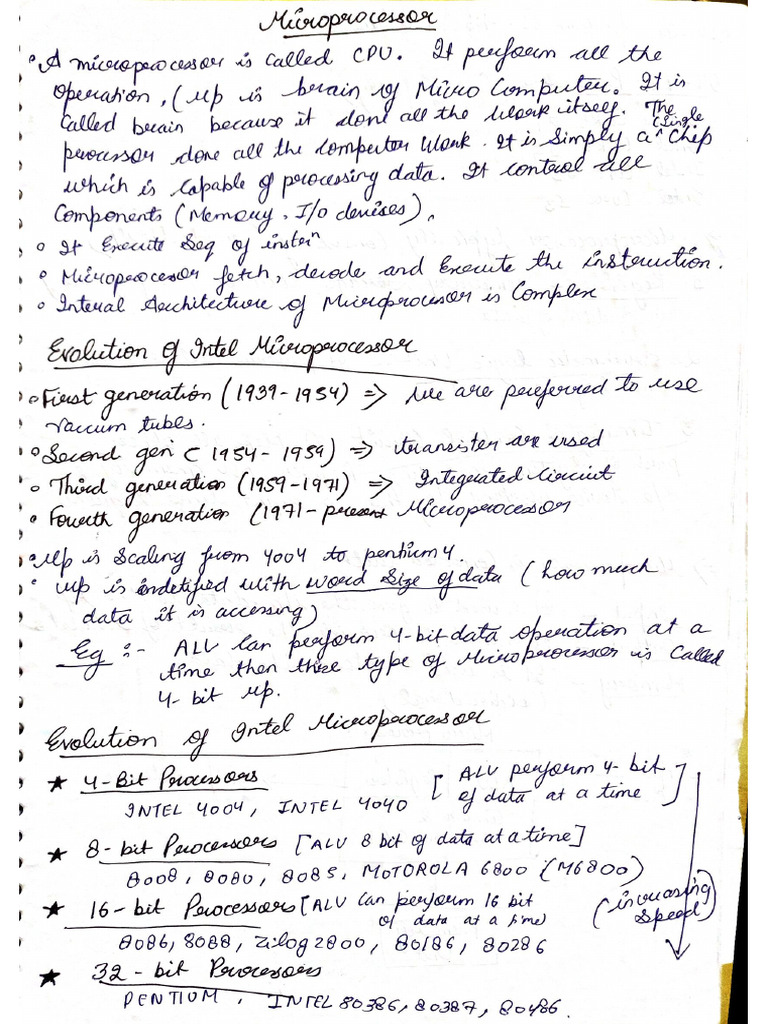 Microprocessor
• A microprocessor is called CPU. It perform all the
operation, (μp is brain of Micro Computer. It is
called brain because it done all the work itself. The
processor done all the computer work. It is simply a ^(single) chip
which is capable of processing data. It control all
Components (Memory, I/o devises).
o It Execute Seq of instrⁿ
o Microprocessor fetch, decode and Execute the instruction.
o Interal Architecture of Microprocessor is Complex
Evolution of Intel Microprocessor
o First generation (1939-1954) => We are preferred to use
vaccum tubes.
o Second gen (1954-1959) => transister are used
o Third generation (1959-1971) => Integrated Circiut
• Fourth generation (1971-present Microprocessor
• Mp is Scaling from 4004 to pentium 4.
• up is indetified with word Size of data (how much
data it is accessing)
Eg :- ALU Can perform 4-bit data operation at a
time then these type of Microprocessor is Called
4-bit up.
Evolution of Intel Microprocessor
★ 4-Bit Processors [ALU perform 4-bit
of data at a time]
INTEL 4004, INTEL 4040
★ 8-bit Processors [ALU 8 bit of data at a time]
8008, 8080, 8085, MOTOROLA 6800 (M6800)
★ 16-bit Processors [ALU Can perform 16 bit
of data at a time)
(increasing
speed)
8086, 8088, Zilog 2800, 80186, 80286
★ 32-bit Processors
PENTIUM, INTEL 80386, 80387, 80486.